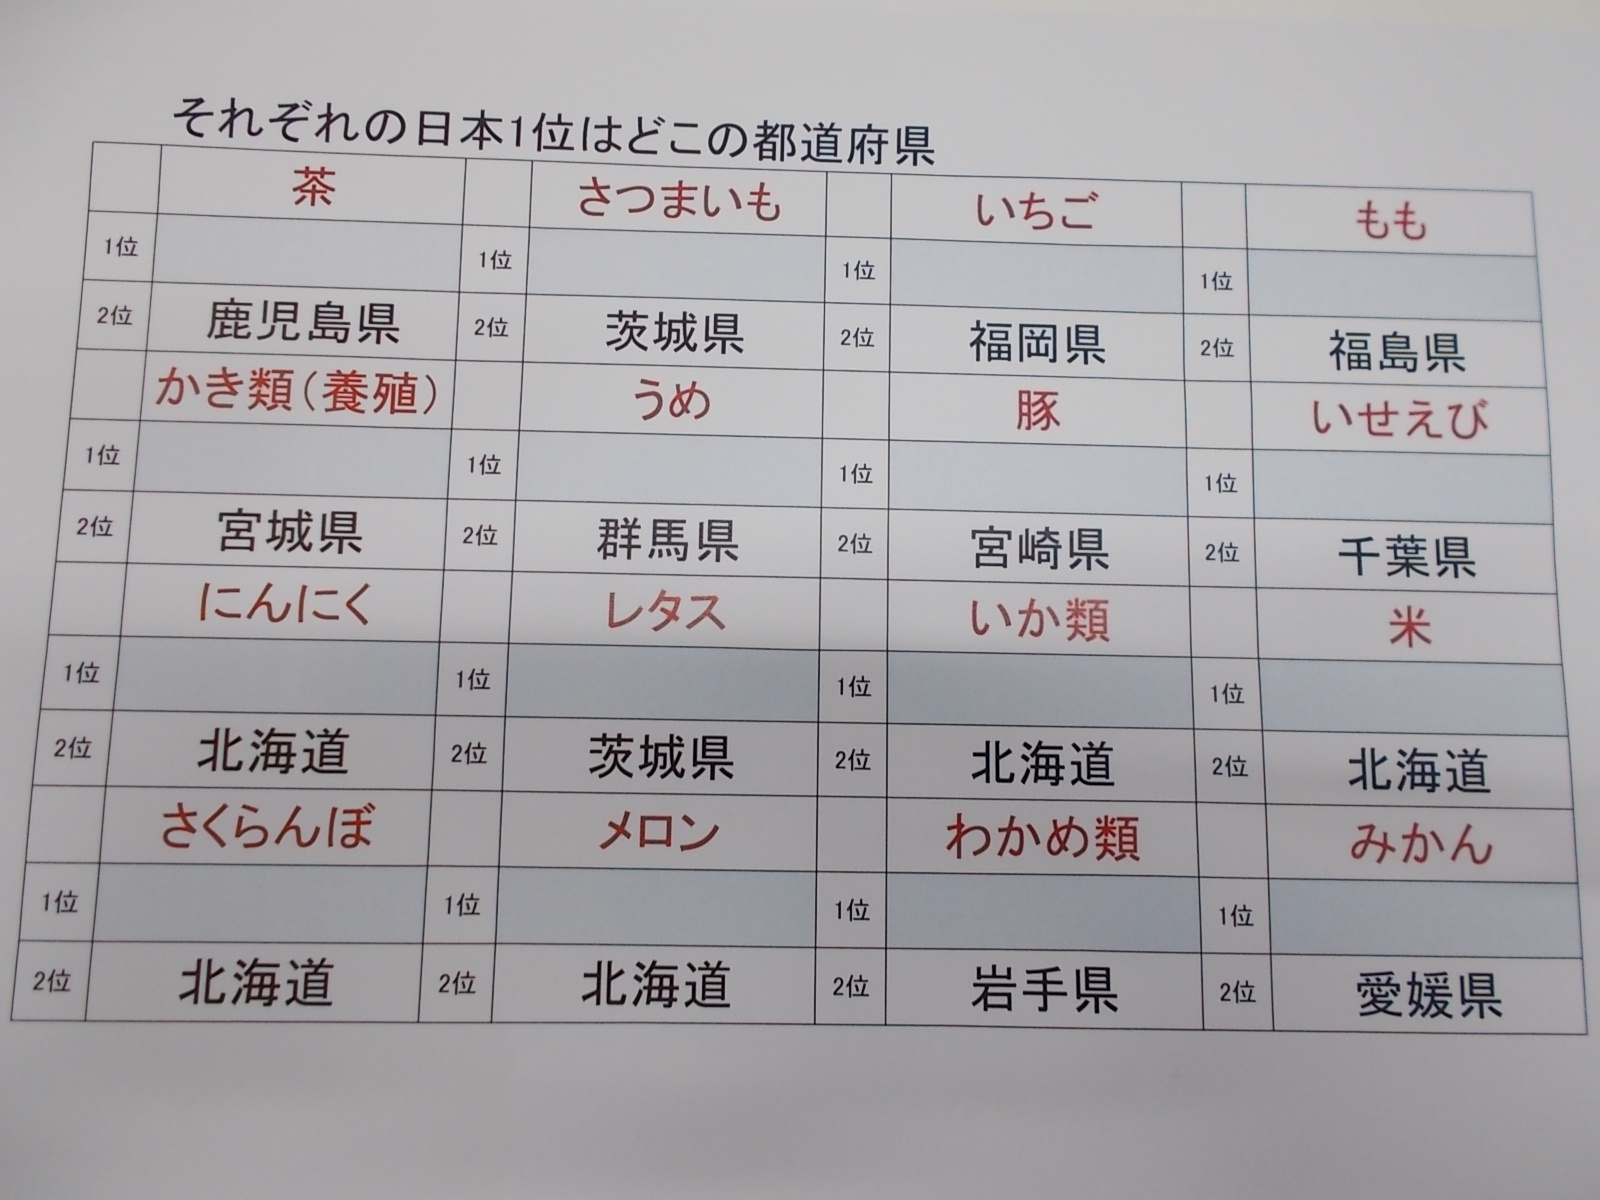 それぞれの日本1位はどこの都道府県
茶 さつまいも いちご もも
1位 1位 1位 1位
2位 鹿児島県 2位 茨城県 2位 福岡県 2位 福島県
かき類(養殖) うめ 豚 いせえび
1位 1位 1位 1位
2位 宮城県 2位 群馬県 2位 宮崎県 2位 千葉県
にんにく レタス いか類 米
1位 1位 1位 1位
2位 北海道 2位 茨城県 2位 北海道 2位 北海道
さくらんぼ メロン わかめ類 みかん
1位 1位 1位 1位
2位 北海道 2位 北海道 2位 岩手県 2位 愛媛県